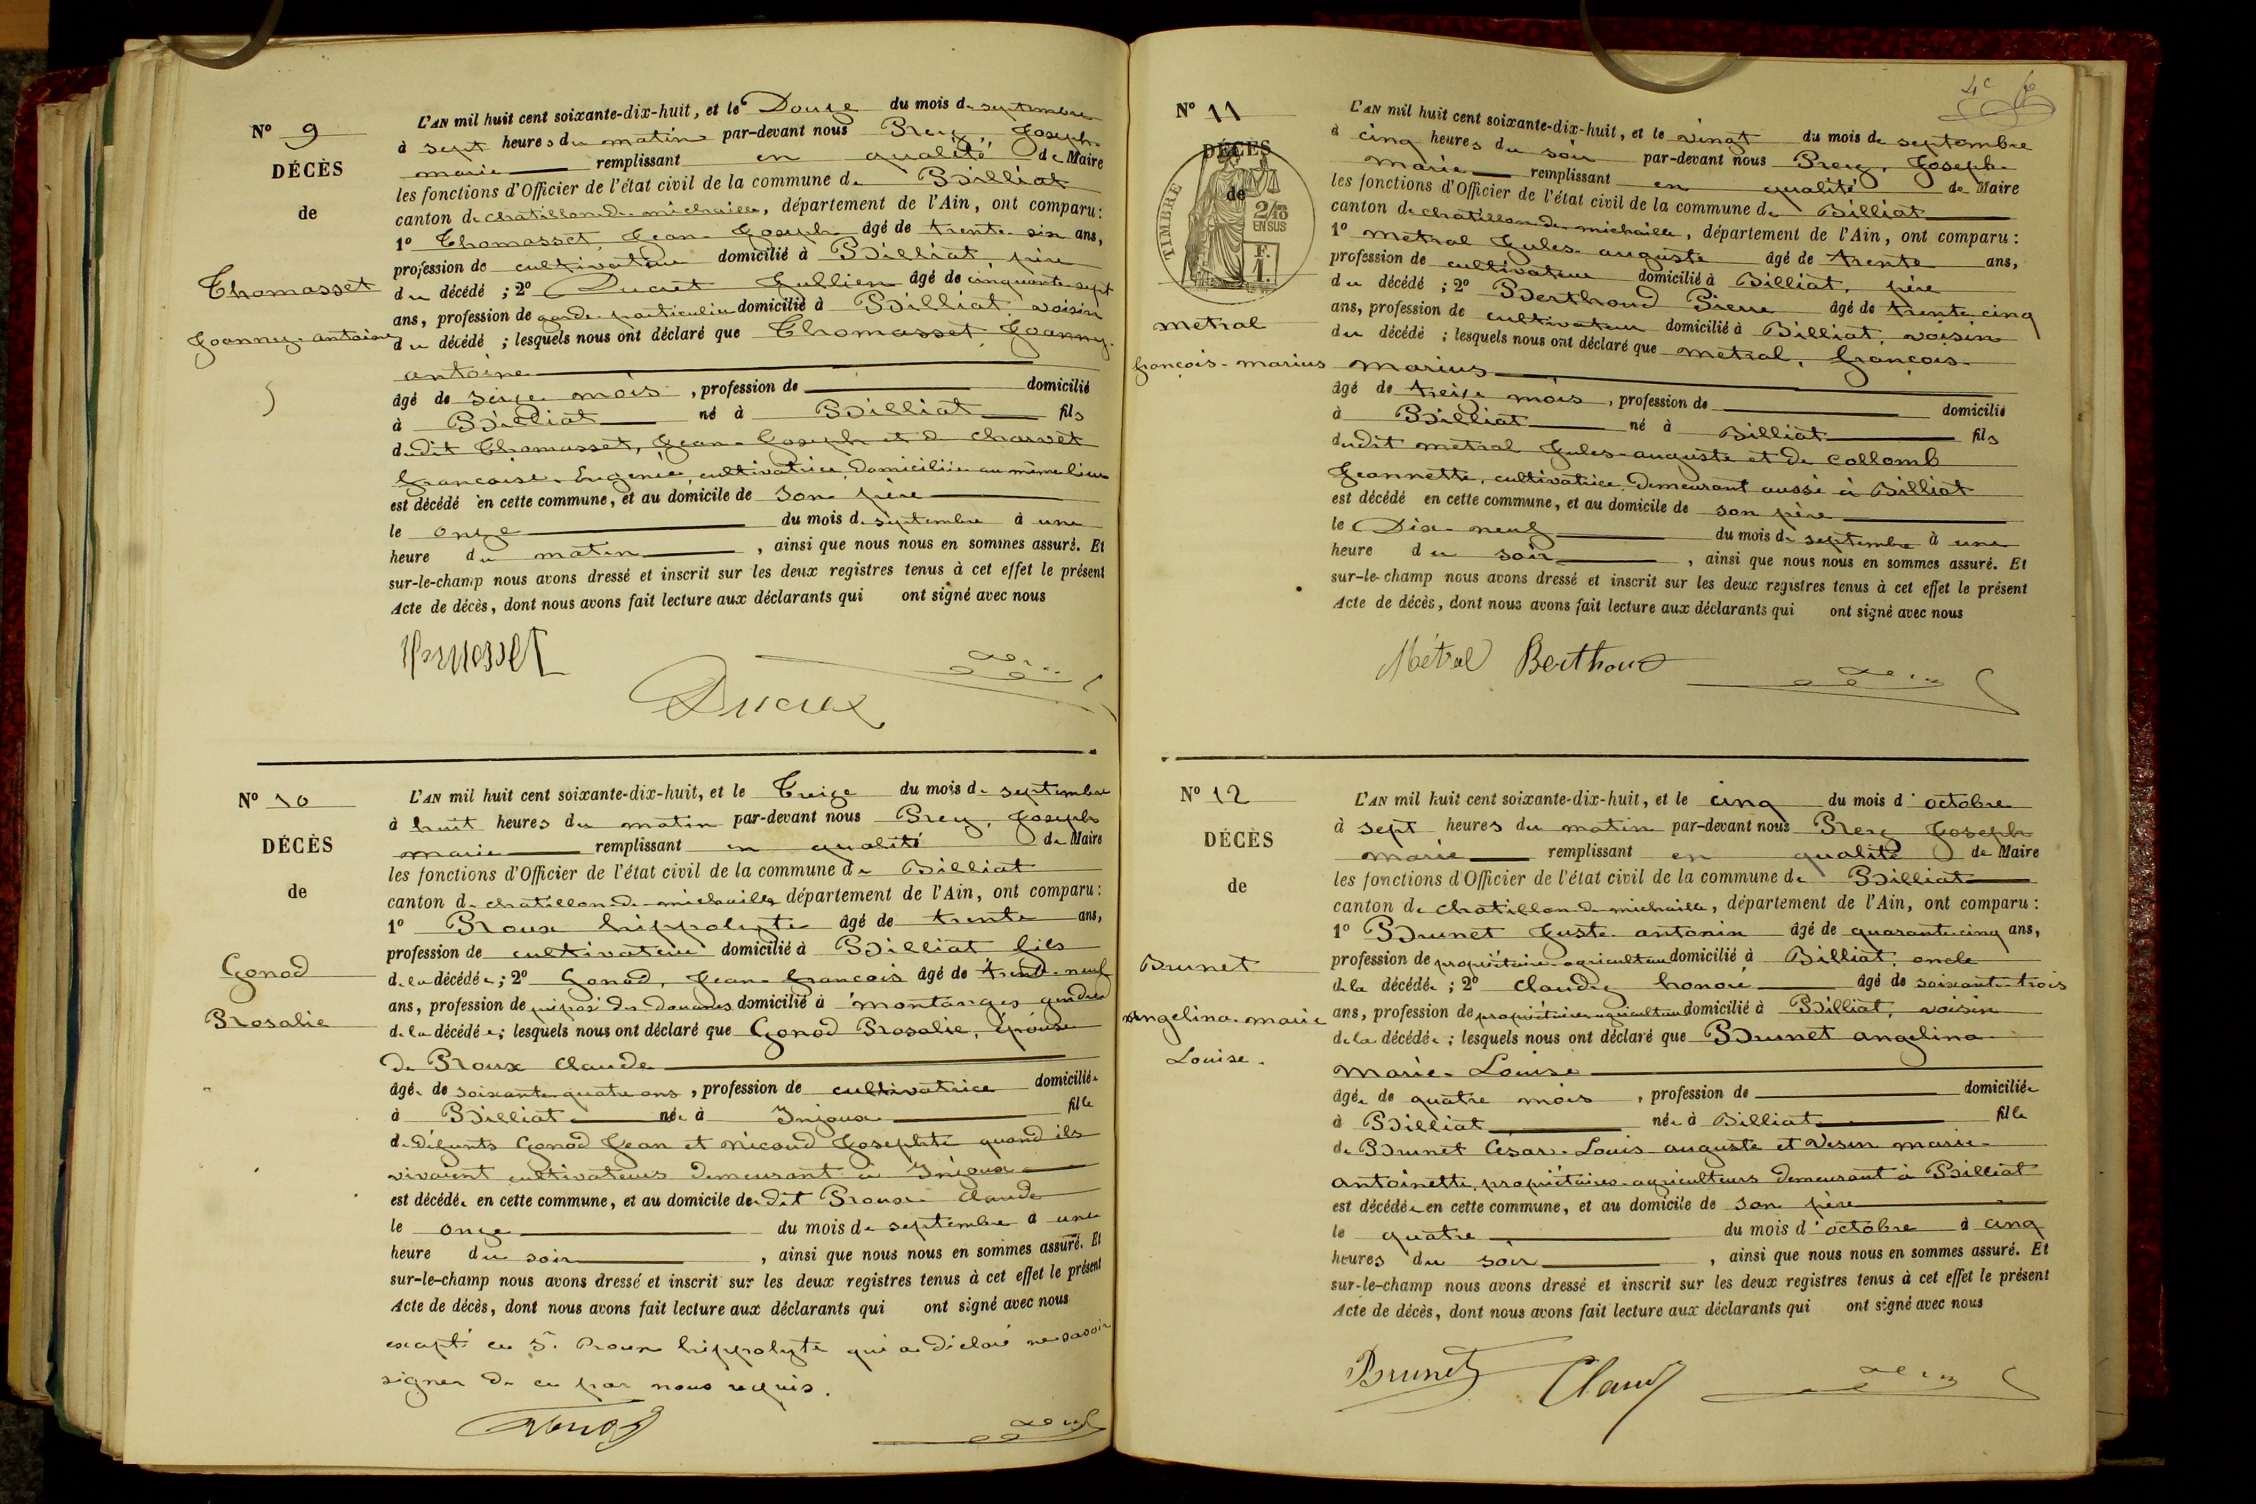 N° 9
DÉCÈS
de
Thomasset
Joanny-antoine
L'AN mil huit cent soixante-dix-huit, et le Douze du mois de septembre
à sept heures du matin par-devant nous Prey, Joseph
marie remplissant en qualité de Maire
les fonctions d'Officier de l'état civil de la commune de Billiat
canton de chatillon de michaille, département de l'Ain, ont comparu :
1° Thomasset, Jean Joseph âgé de trente six ans,
profession de cultivateur domicilié à Billiat, père
du décédé ; 2° Ducret Jullien âgé de cinquante sept
ans, profession de garde particulier domicilié à Billiat, voisin
du décédé ; lesquels nous ont déclaré que Thomasset Joanny
antoine
âgé de seize mois, profession de domicilié
à Billiat né à Billiat fils
dudit Thomasset, Jean Joseph et de charvet
françoise Eugénie, cultivatrice, domiciliée au même lieu
est décédé en cette commune, et au domicile de son père
le onze du mois de septembre à une
heure du matin, ainsi que nous nous en sommes assuré. Et
sur-le-champ nous avons dressé et inscrit sur les deux registres tenus à cet effet le présent
Acte de décès, dont nous avons fait lecture aux déclarants qui ont signé avec nous
N° 10
DÉCÈS
de
Gonod
Rosalie
L'AN mil huit cent soixante-dix-huit, et le Treize du mois de septembre
à huit heures du matin par-devant nous Prey, Joseph
marie remplissant en qualité de Maire
les fonctions d'Officier de l'état civil de la commune de Billiat
canton de chatillon de michaille, département de l'Ain, ont comparu :
1° Roux hippolyte âgé de trente ans,
profession de cultivateur domicilié à Billiat fils
de la décédée ; 2° Gonod, Jean françois âgé de trente neuf
ans, profession de préposé des douanes domicilié à montanges gendre
de la décédée ; lesquels nous ont déclaré que Gonod Rosalie, épouse
de Roux claude
âgée de soixante quatre ans, profession de cultivatrice domiciliée
à Billiat née à Injoux fille
de défunts Gonod Jean et nicoud Josephte quand ils
vivaient cultivateurs demeurant à Injoux
est décédée en cette commune, et au domicile dudit Roux claude
le onze du mois de septembre à une
heure du soir, ainsi que nous nous en sommes assuré. Et
sur-le-champ nous avons dressé et inscrit sur les deux registres tenus à cet effet le présent
Acte de décès, dont nous avons fait lecture aux déclarants qui ont signé avec nous
excepté ce Sr. Roux hippolyte qui a déclaré ne savoir
signer de ce par nous requis.
N° 11
DÉCÈS
de
TIMBRE
2/10
EN SUS
F.
1.
metral
françois-marius
L'AN mil huit cent soixante-dix-huit, et le vingt du mois de septembre
à cinq heures du soir par-devant nous Prey, Joseph
marie remplissant en qualité de Maire
les fonctions d'Officier de l'état civil de la commune de Billiat
canton de chatillon de michaille, département de l'Ain, ont comparu :
1° metral Jules auguste âgé de trente ans,
profession de cultivateur domicilié à Billiat, père
du décédé ; 2° Berthoud Pierre âgé de trente cinq
ans, profession de cultivateur domicilié à Billiat, voisin
du décédé ; lesquels nous ont déclaré que metral, françois
marius
âgé de treize mois, profession de domicilié
à Billiat né à Billiat fils
dudit metral Jules-auguste et de collomb
Jeannette, cultivatrice demeurant aussi à Billiat
est décédé en cette commune, et au domicile de son père
le Dix-neuf du mois de septembre à une
heure du soir, ainsi que nous nous en sommes assuré. Et
sur-le-champ nous avons dressé et inscrit sur les deux registres tenus à cet effet le présent
Acte de décès, dont nous avons fait lecture aux déclarants qui ont signé avec nous
Métral Berthoud
N° 12
DÉCÈS
de
Brunet
angelina-marie
Louise.
L'AN mil huit cent soixante-dix-huit, et le cinq du mois d'octobre
à sept heures du matin par-devant nous Prey Joseph
marie remplissant en qualité de Maire
les fonctions d'Officier de l'état civil de la commune de Billiat
canton de chatillon de michaille, département de l'Ain, ont comparu :
1° Brunet Juste antonin âgé de quarante cinq ans,
profession de propriétaire agriculteur domicilié à Billiat, oncle
de la décédée ; 2° claudy honoré âgé de soixante trois
ans, profession de propriétaire agriculteur domicilié à Billiat, voisin
de la décédée ; lesquels nous ont déclaré que Brunet angelina
marie-Louise
âgée de quatre mois, profession de domiciliée
à Billiat née à Billiat fille
de Brunet César-Louis auguste et Vesin marie
antoinette, propriétaires-agriculteurs demeurant à Billiat
est décédée en cette commune, et au domicile de son père
le quatre du mois d'octobre à cinq
heures du soir, ainsi que nous nous en sommes assuré. Et
sur-le-champ nous avons dressé et inscrit sur les deux registres tenus à cet effet le présent
Acte de décès, dont nous avons fait lecture aux déclarants qui ont signé avec nous
Brunet Claudy